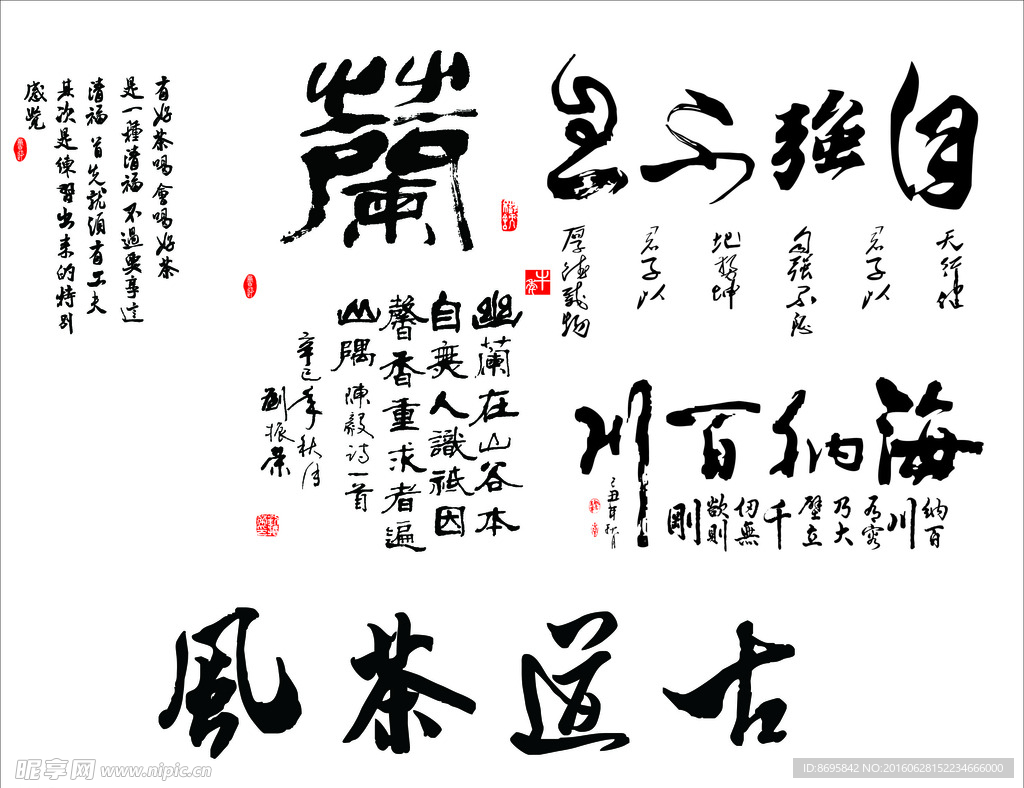 自強不息
天行健
君子以
自强不息
地势坤
君子以
厚德載物
海納百川
納百
川
有容
乃大
壁立
千
仞無
欲則
剛
己丑年秋月
蘭
幽蘭在山谷本
自無人識祗因
馨香重求者遍
山隅 陳毅詩一首
辛巳年秋月
劉振榮
有好茶喝會喝好茶
是一種清福不過要享這
清福首先就須有工夫
其次是練習出来的特别
感觉
古道茶風
昵享网 www.nipic.cn
ID:8695842 NO:20160628152234666000